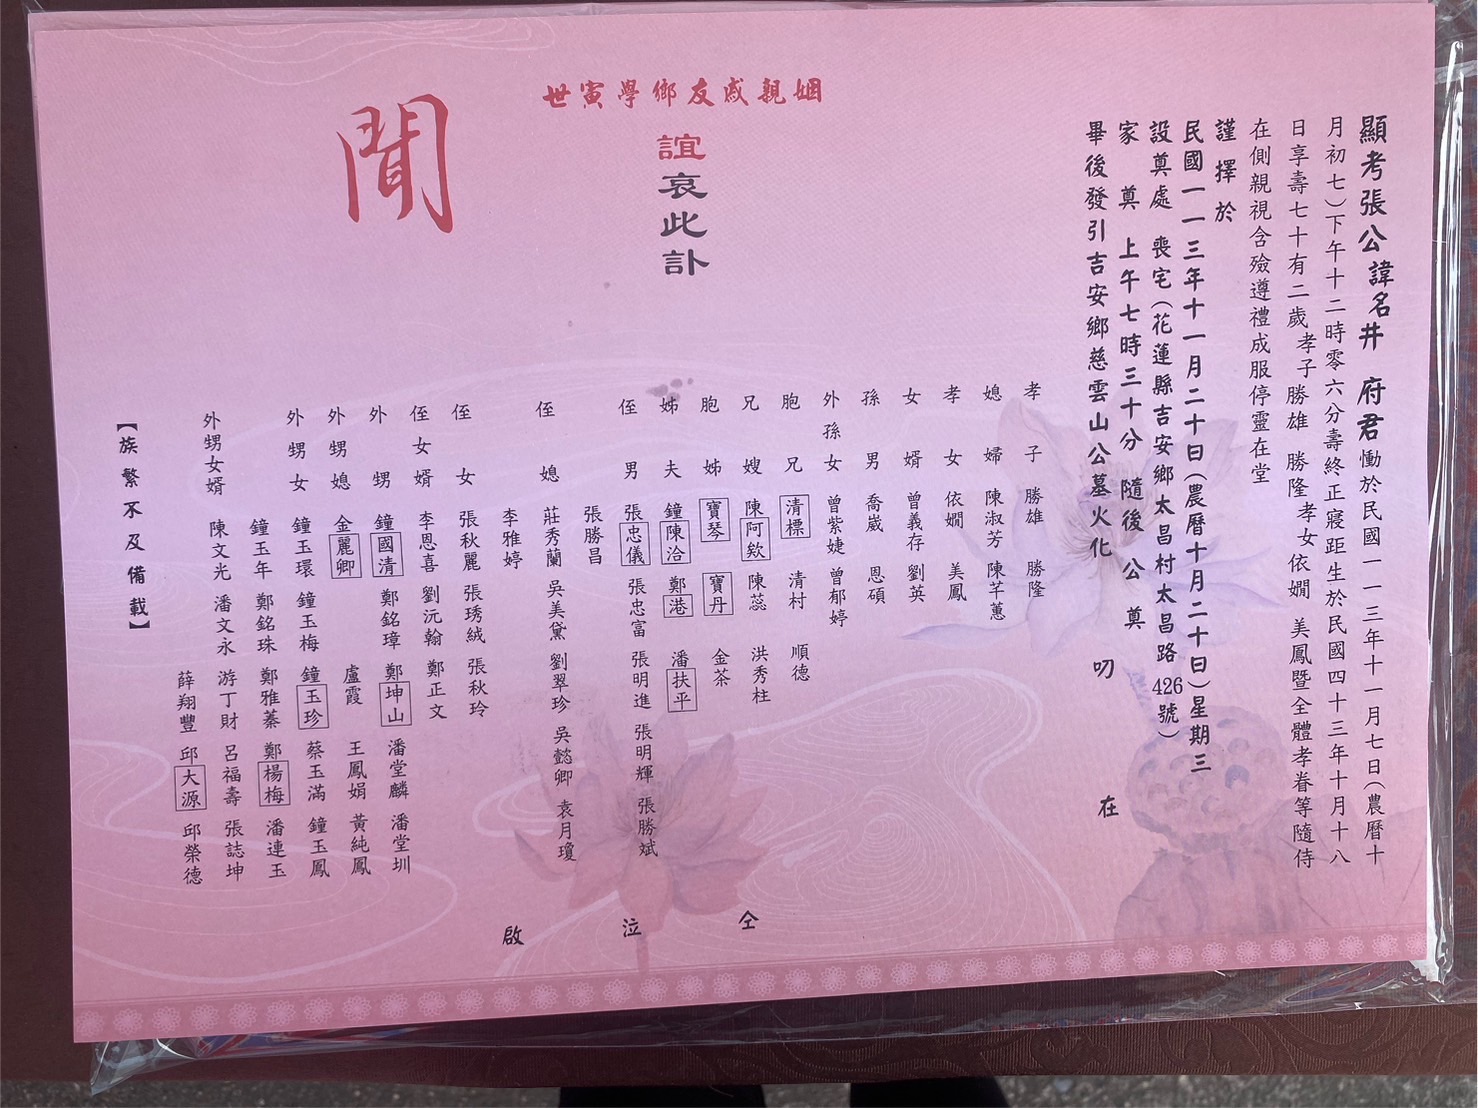 顯考張公諱名井 府君慟於民國一一三年十一月七日(農曆十
月初七)下午十二時零六分壽終正寢距生於民國四十三年十月十八
日享壽七十有二歲孝子勝雄 勝隆孝女依嫺 美鳳暨全體孝眷等隨侍
在側親視含殮遵禮成服停靈在堂
謹擇於
民國一一三年十一月二十日(農曆十月二十日)星期三
設奠處 喪宅(花蓮縣吉安鄉太昌村太昌路426號)
家 奠 上午七時三十分 隨後 公 奠
畢後發引吉安鄉慈雲山公墓火化 叨 在
姻親戚友鄉學寅世
誼哀此訃
聞
孝子 勝雄 勝隆
媳婦 陳淑芳 陳芊蕙
孝女 依嫺 美鳳
女婿 曾義存 劉英
孫男 喬崴 恩碩
外孫女 曾紫婕 曾郁婷
胞兄 清標 清村 順德
兄嫂 陳阿欸 陳蕊 洪秀柱
胞姊 寶琴 寶丹 金茶
姊夫 鐘陳洽 鄭港 潘扶平
侄男 張忠儀 張忠富 張明進 張明輝 張勝斌
張勝昌
侄媳 莊秀蘭 吳美黛 劉翠珍 吳懿卿 袁月瓊
李雅婷
侄女 張秋麗 張琇絨 張秋玲
侄女婿 李恩喜 劉沅翰 鄭正文
外甥 鐘國清 鄭銘璋 鄭坤山 潘堂麟 潘堂圳
外甥媳 金麗卿 盧霞 王鳳娟 黃純鳳
外甥女 鐘玉環 鐘玉梅 鐘玉珍 蔡玉滿 鐘玉鳳
鐘玉年 鄭銘珠 鄭雅蓁 鄭楊梅 潘連玉
外甥女婿 陳文光 潘文永 游丁財 呂福壽 張誌坤
薛翔豐 邱大源 邱榮德
仝 泣 啟
【族繁不及備載】